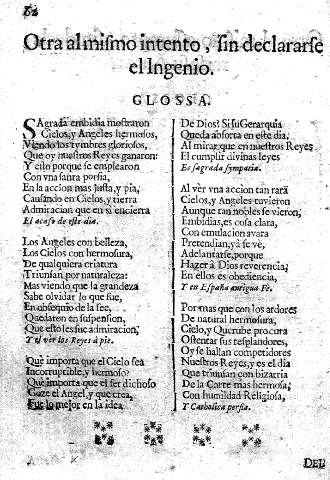 62
Otra al mismo intento, sin declararse
el Ingenio.
GLOSSA.
SAgrada embidia mostraron
Cielos, y Angeles hermosos,
Viendo los tymbres gloriosos,
Que oy nuestros Reyes ganaron:
Y esto porque se emplearon
Con vna santa porfia,
En la accion mas justa, y pia,
Causando en Cielos, y tierra
Admiracion que si encierra
El acaso de este dia.
Los Angeles con belleza,
Los Cielos con hermosura,
De qualquiera criatura
Triunfan por naturaleza:
Mas viendo que la grandeza
Sabe olvidar lo que fue,
En obsequio de la fee,
Quedaron en suspension,
Que esto les fue admiracion,
Y el ver los Reyes à pie.
Què importa que el Cielo sea
Incorruptible, y hermoso?
Què importa que el ser dichoso
Goze el Angel, y que crea,
Fue lo mejor en la idea
De Dios? Si su Gerarquia
Queda absorta en este dia,
Al mirar que en nuestros Reyes
El cumplir divinas leyes
Es sagrada sympatia.
Al ver vna accion tan rara
Cielos, y Angeles tuvieron
Aunque tan nobles se vieron,
Embidias, es cosa clara,
Con emulacion avara
Pretendian, yà se vè,
Adelantarse, porque
Hazer à Dios reverencia,
En ellos es obediencia,
Y en España antigua Fè.
Por mas que con los ardores
De natural hermosura,
Cielo, y Querube procura
Ostentar sus resplandores,
Oy se hallan competidores
Nuestros Reyes, y es el dia
Que triunfan con bizarria
De la Corte mas hermosa,
Con humildad Religiosa,
Y Catholica porfia.
DEL